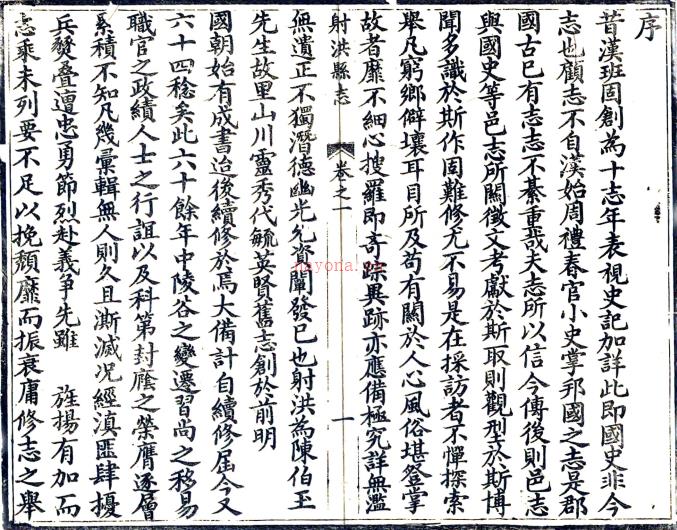 序
昔漢班固創為十志年表視史記加詳此即國史非今
志也顧志不自漢始周禮春官小史掌邦國之志是郡
國古已有志志不綦重哉夫志所以信今傳後則邑志
與國史等邑志所關徵文考獻於斯取則觀型於斯博
聞多識於斯作固難修尤不易是在採訪者不憚探索
舉凡窮鄉僻壤耳目所及苟有關於人心風俗堪登掌
故者靡不細心搜羅即奇踪異跡亦應備極究詳無濫
射洪縣志
卷之一
一
無遺正不獨潛德幽光允資闡發已也射洪為陳伯玉
先生故里山川靈秀代毓英賢舊志創於前明
國朝始有成書迨後續修於焉大備計自續修屆今又
六十四稔矣此六十餘年中陵谷之變遷習尚之移易
職官之政績人士之行誼以及科第封廕之榮膺逐層
累積不知凡幾彙輯無人則久且澌滅况經滇匪肆擾
兵燹疊遭忠勇節烈赴義爭先雖 旌揚有加而
志乘未列要不足以挽頹靡而振衰庸修志之舉
nayona.cn